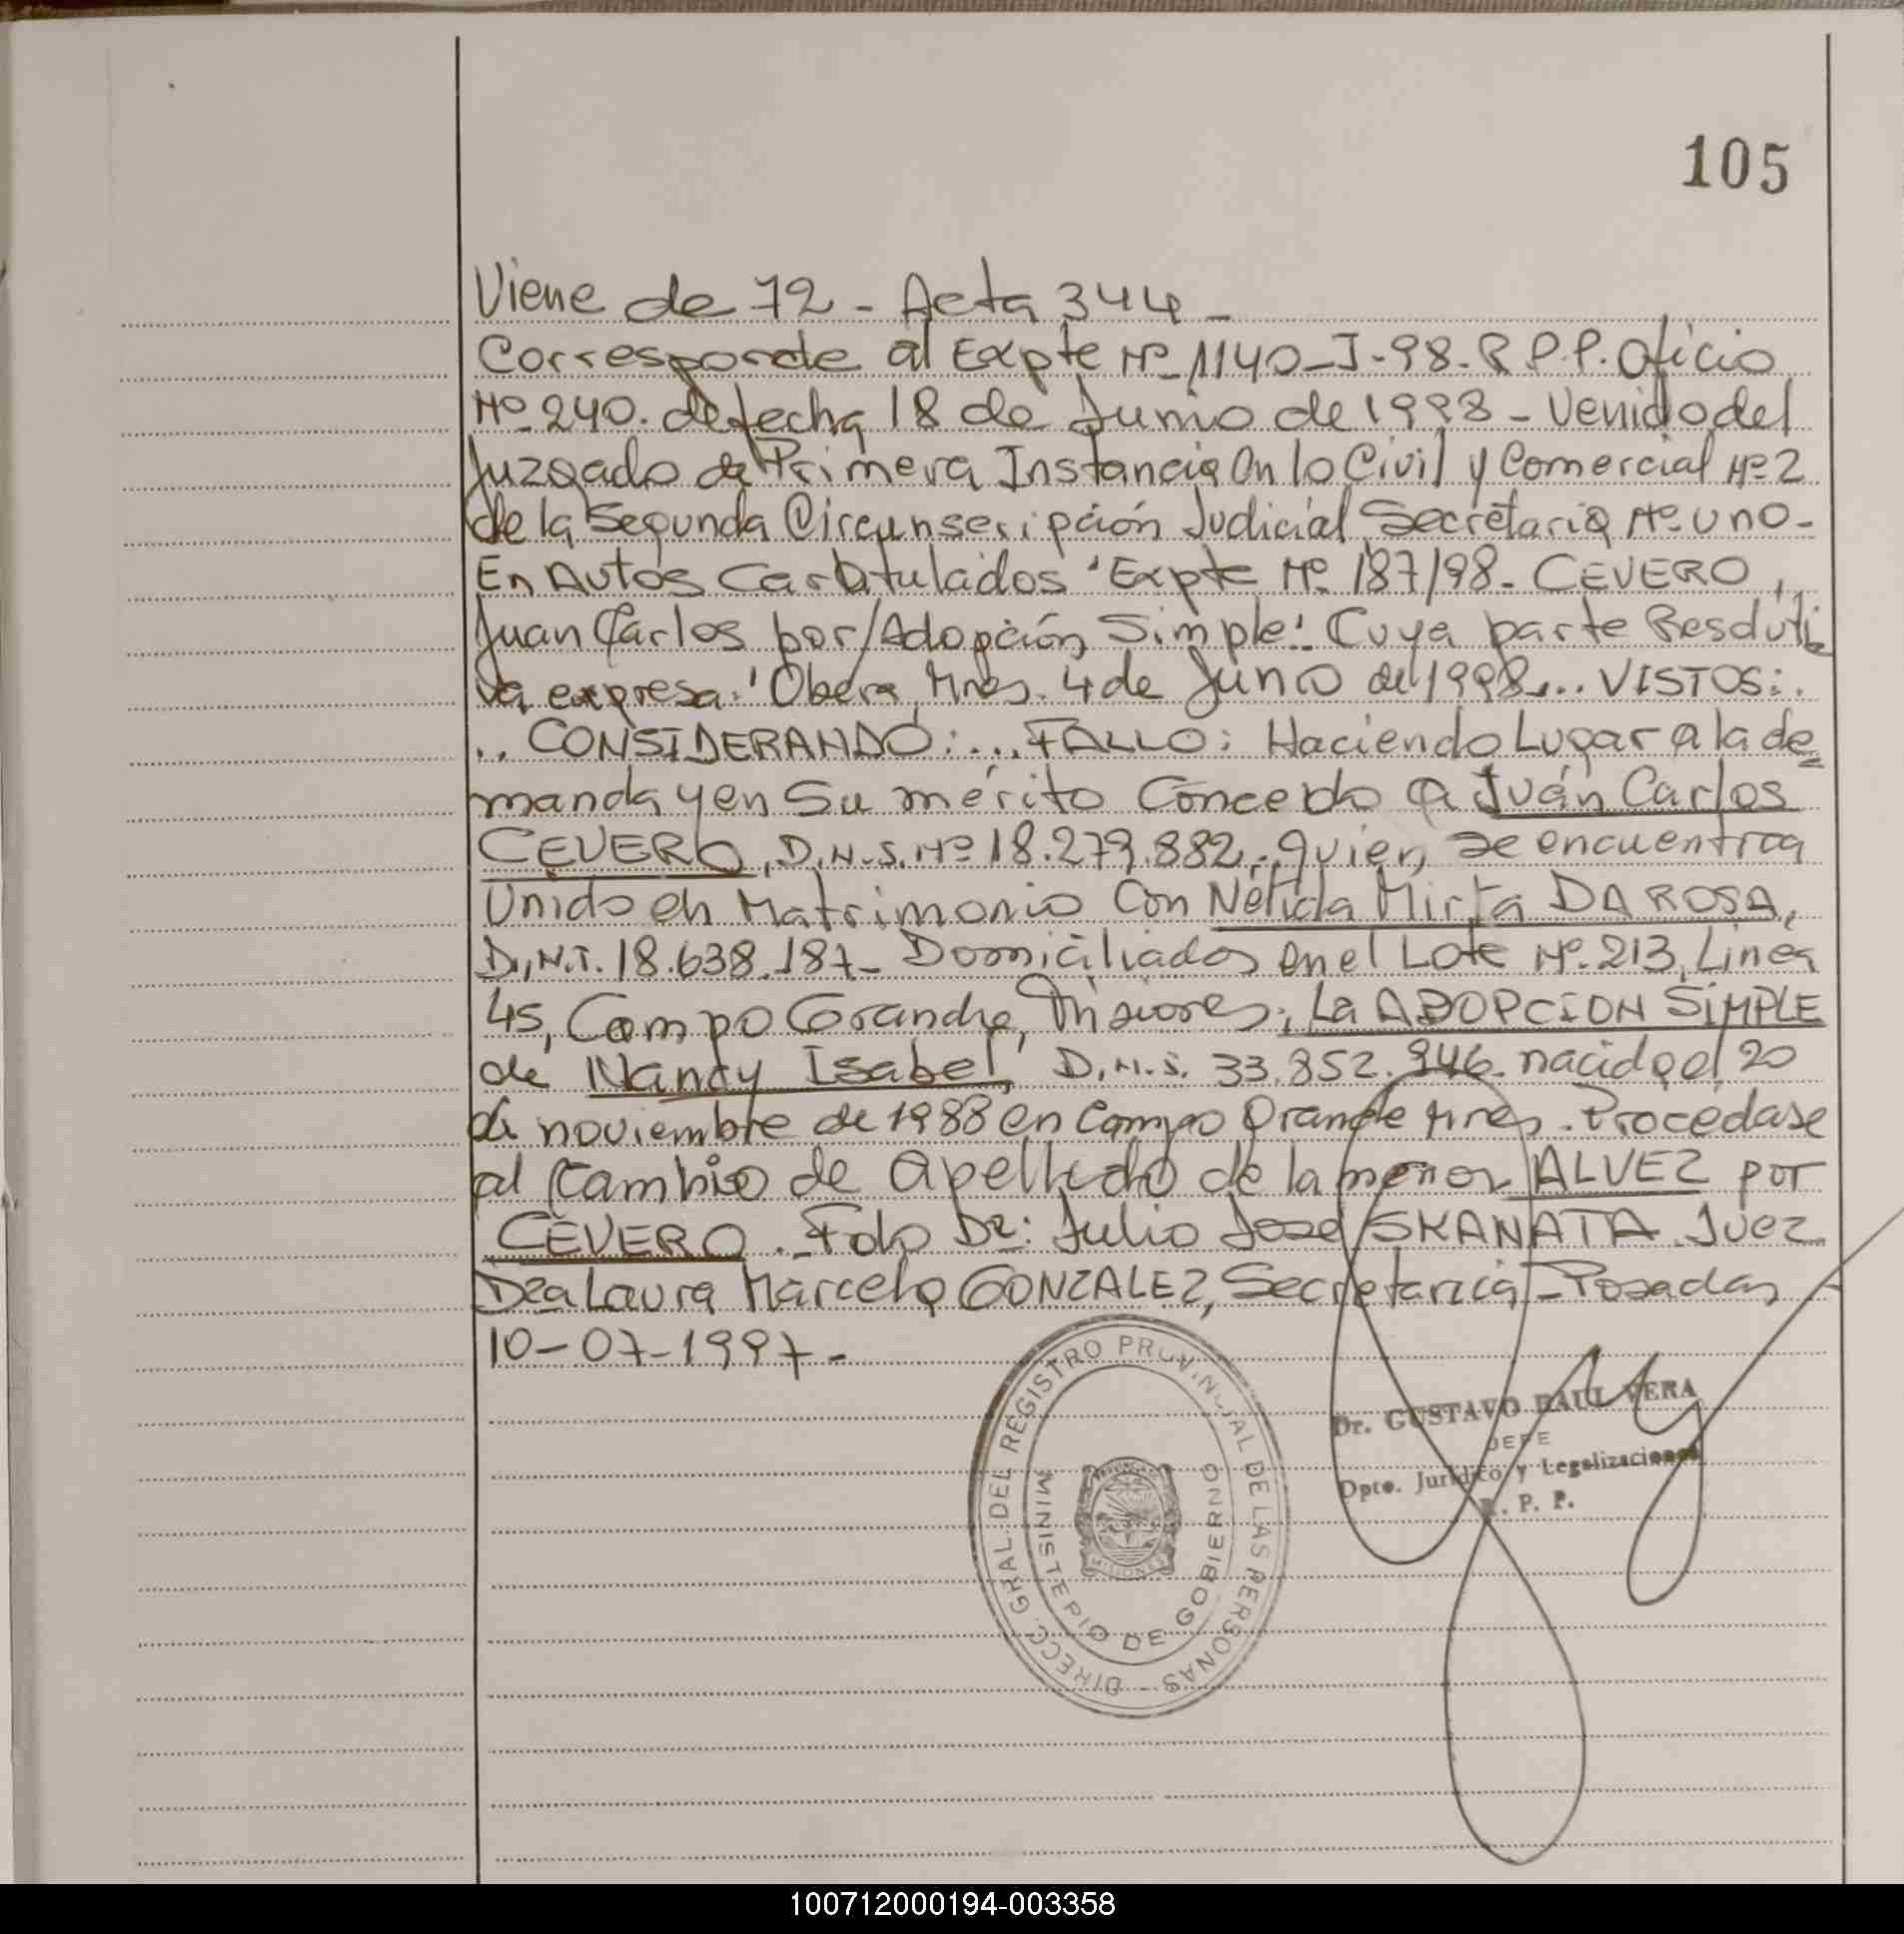 105
Viene de 72 - Acta 344 -
Corresponde al Expte Nº 1140-I-98-R.P.P. Oficio
Nº 240. de fecha 18 de Junio de 1998 - Venido del
Juzgado de Primera Instancia en lo Civil y Comercial Nº 2
de la Segunda Circunscripción Judicial, Secretaria Nº uno -
En Autos Caratulados "Expte Nº 187/98 - CEVERO,
Juan Carlos por/Adopción Simple". Cuya parte Resoluti
va expresa: "Obera, Mnes. 4 de Junio de 1998... VISTOS:.
.. CONSIDERANDO:... FALLO: Haciendo Lugar a la de=
manda y en Su mérito Concedo a Juán Carlos
CEVERO, D.N.I. Nº 18.279.882, quien se encuentra
Unido en Matrimonio Con Nélida Mirta DA ROSA,
D.N.I. 18.638.187 - Domiciliados en el Lote Nº 213, Linea
45, Campo Grande, Misiones; La ADOPCION SIMPLE
de Nancy Isabel, D.N.I. 33.852.946. nacida el 20
de noviembre de 1988 en Campo Grande Mnes. Procedase
al Cambio de apellido de la menor ALVEZ por
CEVERO. Fdo Dr: Julio José SKANATA Juez
Dra Laura Marcela GONZALEZ, Secretaria - Posadas
10-07-1997-
DIRECC. GRAL. DEL REGISTRO PROVINCIAL DE LAS PERSONAS -
MINISTERIO DE GOBIERNO
MISIONES
Dr. GUSTAVO RAUL VERA
JEFE
Dpto. Jurídico y Legalizaciones
R. P. P.
100712000194-003358